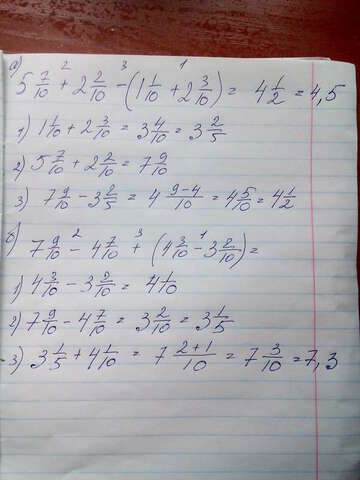 а)
5 7/10 + 2 2/10 - (1 1/10 + 2 3/10) = 4 1/2 = 4,5
1) 1 1/10 + 2 3/10 = 3 4/10 = 3 2/5
2) 5 7/10 + 2 2/10 = 7 9/10
3) 7 9/10 - 3 2/5 = 4 (9-4)/10 = 4 5/10 = 4 1/2
б)
7 9/10 - 4 7/10 + (4 3/10 - 3 2/10) =
1) 4 3/10 - 3 2/10 = 4 1/10
2) 7 9/10 - 4 7/10 = 3 2/10 = 3 1/5
3) 3 1/5 + 4 1/10 = 7 (2+1)/10 = 7 3/10 = 7,3